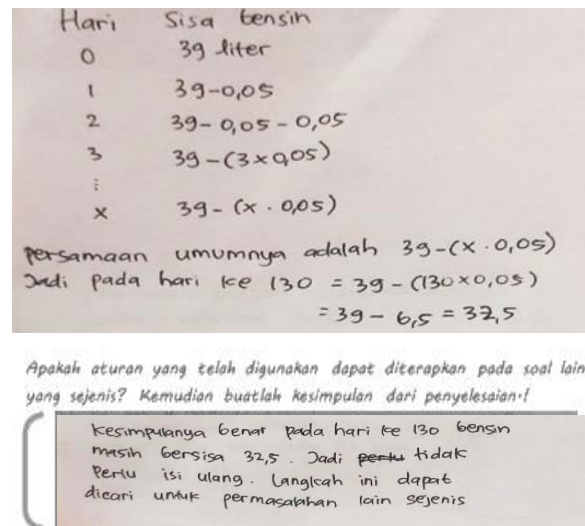 Hari Sisa bensin
0 39 liter
1 39-0,05
2 39-0,05-0,05
3 39-(3×0,05)
⋮
x 39-(x . 0,05)
persamaan umumnya adalah 39-(x . 0,05)
Jadi pada hari ke 130 = 39-(130×0,05)
= 39 - 6,5 = 32,5
Apakah aturan yang telah digunakan dapat diterapkan pada soal lain
yang sejenis? Kemudian buatlah kesimpulan dari penyelesaian.!
Kesimpulanya benar pada hari ke 130 bensin
masih bersisa 32,5. Jadi perlu tidak
Perlu isi ulang. Langkah ini dapat
dicari untuk permasalahan lain sejenis